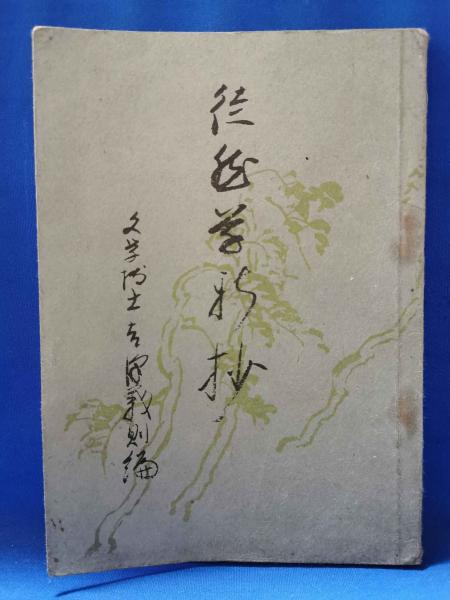 徒然草新抄
文学博士吉澤義則編